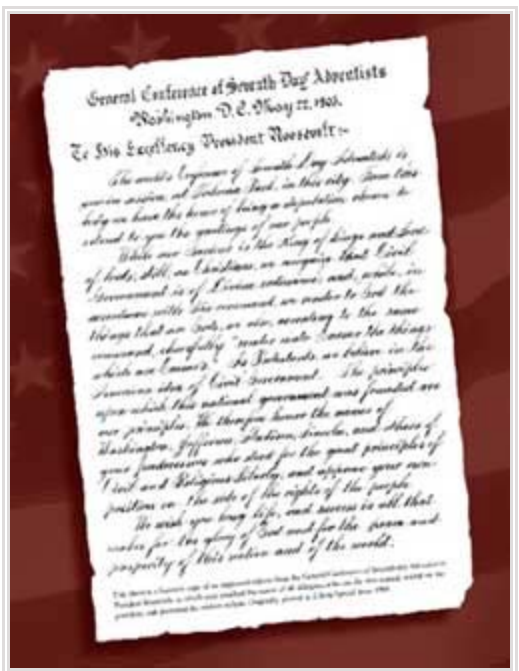 General Conference of Seventh Day Adventists
Washington D. C. May 22, 1905.
To His Excellency President Roosevelt:-
The world's Conference of Seventh Day Adventists is
now in session, at Takoma Park, in this city. From this
body we have the honor of being a deputation chosen to
extend to you the greetings of our people.
While our Saviour is the King of kings and Lord
of lords, still, as Christians, we recognize that Civil
Government is of Divine ordinance, and, while, in
accordance with His command, we render to God the
things that are God's, we also, according to the same
command, cheerfully "render unto Caesar the things
which are Caesar's." As Protestants, we believe in the
American idea of Civil Government. The principles
upon which this national government was founded are
our principles. We therefore honor the names of
Washington, Jefferson, Madison, Lincoln, and others of
your predecessors who stood for the great principles of
Civil and Religious Liberty, and approve your own
position on the side of the rights of the people.
We wish you long life, and success in all that
makes for the glory of God and for the peace and
prosperity of this nation and of the world.